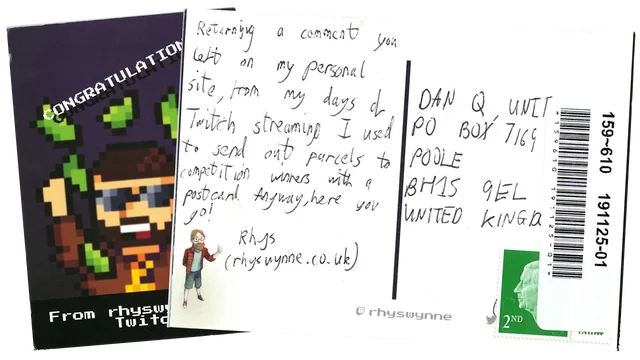 CONGRATULATION
From rhyswy
Twitc
Returning a comment you
left on my personal
site, from my days of
Twitch streaming I used
to send out parcels to
competition winners with a
postcard. Anyway, here you
go!
Rhys
(rhyswynne.co.uk)
rhyswynne
DAN Q, UNIT
PO BOX 7169
POOLE
BH15 9EL
UNITED KINGD
2ND
159~610 191125-01